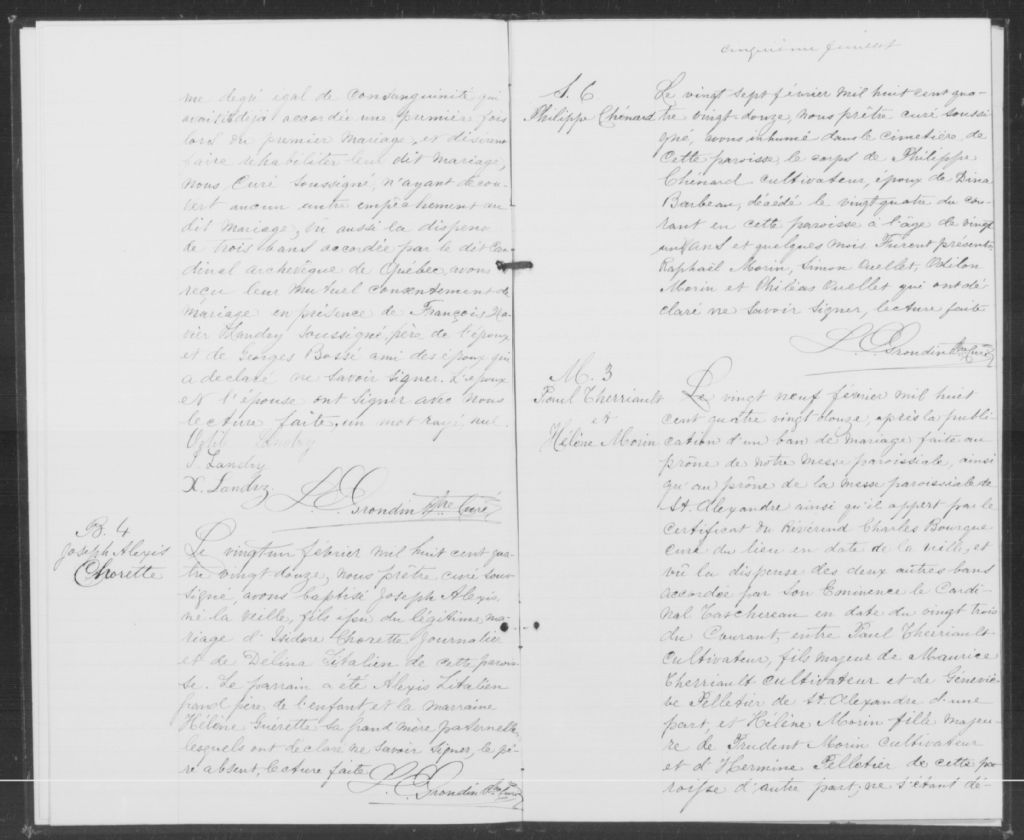 me degré égal de consanguinité qui
avait déjà accordée une première fois
lors du premier mariage, et désirent
faire réhabiliter leur dit mariage,
Nous, Curé soussigné, n'ayant décou-
vert aucun autre empêchement au
dit mariage, vu aussi la dispense
de trois bans accordée par le dit Car
dinal archevêque de Québec, avons
reçu leur mutuel consentement de
mariage en présence de François Xa-
vier Landry soussigné, père de l'époux
et de Georges Bossé ami des époux qui
a déclaré ne savoir signer. L'époux
et l'épouse ont signer avec Nous
lecture faite, un mot rayé, nul.
Landry
J. Landry
X. Landry
L. C. Grondin Ptre Curé
B. 4
Joseph Alexis
Chorette
Le vingtun février mil huit cent qua-
tre vingt douze, nous prêtre curé sous-
signé, avons baptisé Joseph Alexis,
né la veille, fils issu du légitime ma-
riage d'Isidore Chorette Journalier
et de Délina Litalien de cette parois-
se. Le parrain a été Alexis Litalien
grand père de l'enfant, et la marraine
Hélène Guérette sa grand'mère paternelle,
lesquels ont déclaré ne savoir signer, le pè-
re absent, lecture faite.
L. C. Grondin Ptre Curé
Cinquième feuillet
S. 6
Philippe Chénard
Le vingt sept février mil huit cent qua-
tre vingt-douze, nous prêtre curé soussi
gné, avons inhumé dans le cimetière de
cette paroisse, le corps de Philippe
Chénard cultivateur, époux de Dina
Barbeau, décédé le vingt quatre du cou-
rant en cette paroisse à l'âge de vingt
un ans et quelques mois. Furent présents
Raphaël Morin, Simon Ouellet, Odilon
Morin et Philéas Ouellet qui ont dé-
claré ne savoir signer, lecture faite
L. C. Grondin Ptre Curé
M. 3
Paul Therriault
et
Hélène Morin
Le vingt neuf février mil huit
cent quatre vingt douze, après la publi-
cation d'un ban de mariage faite au
prône de notre messe paroissiale, ainsi
qu'au prône de la messe paroissiale de
St. Alexandre ainsi qu'il appert par le
certificat du Révérend Charles Bourque
curé du lieu en date de la veille, et
vû la dispense des deux autres bans
accordée par Son Eminence le Cardi-
nal Taschereau en date du vingt trois
du courant, entre Paul Therriault
cultivateur, fils majeur de Maurice
Therriault cultivateur et de Geneviè-
ve Pelletier de St. Alexandre d'une
part, et Hélène Morin fille majeu-
re de Prudent Morin cultivateur
et d'Hermine Pelletier de cette pa-
roisse d'autre part; ne s'étant dé-